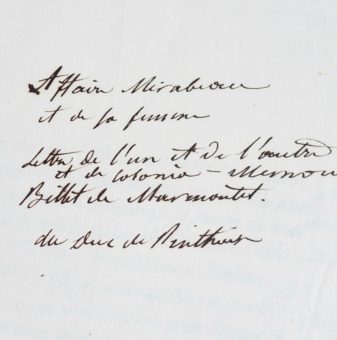 Affaire Mirabeau
et de sa femme
Lettre de l'un et de l'autre
et de colonia - Memoi
Billet de Marmontel.
du Duc de Penthievre